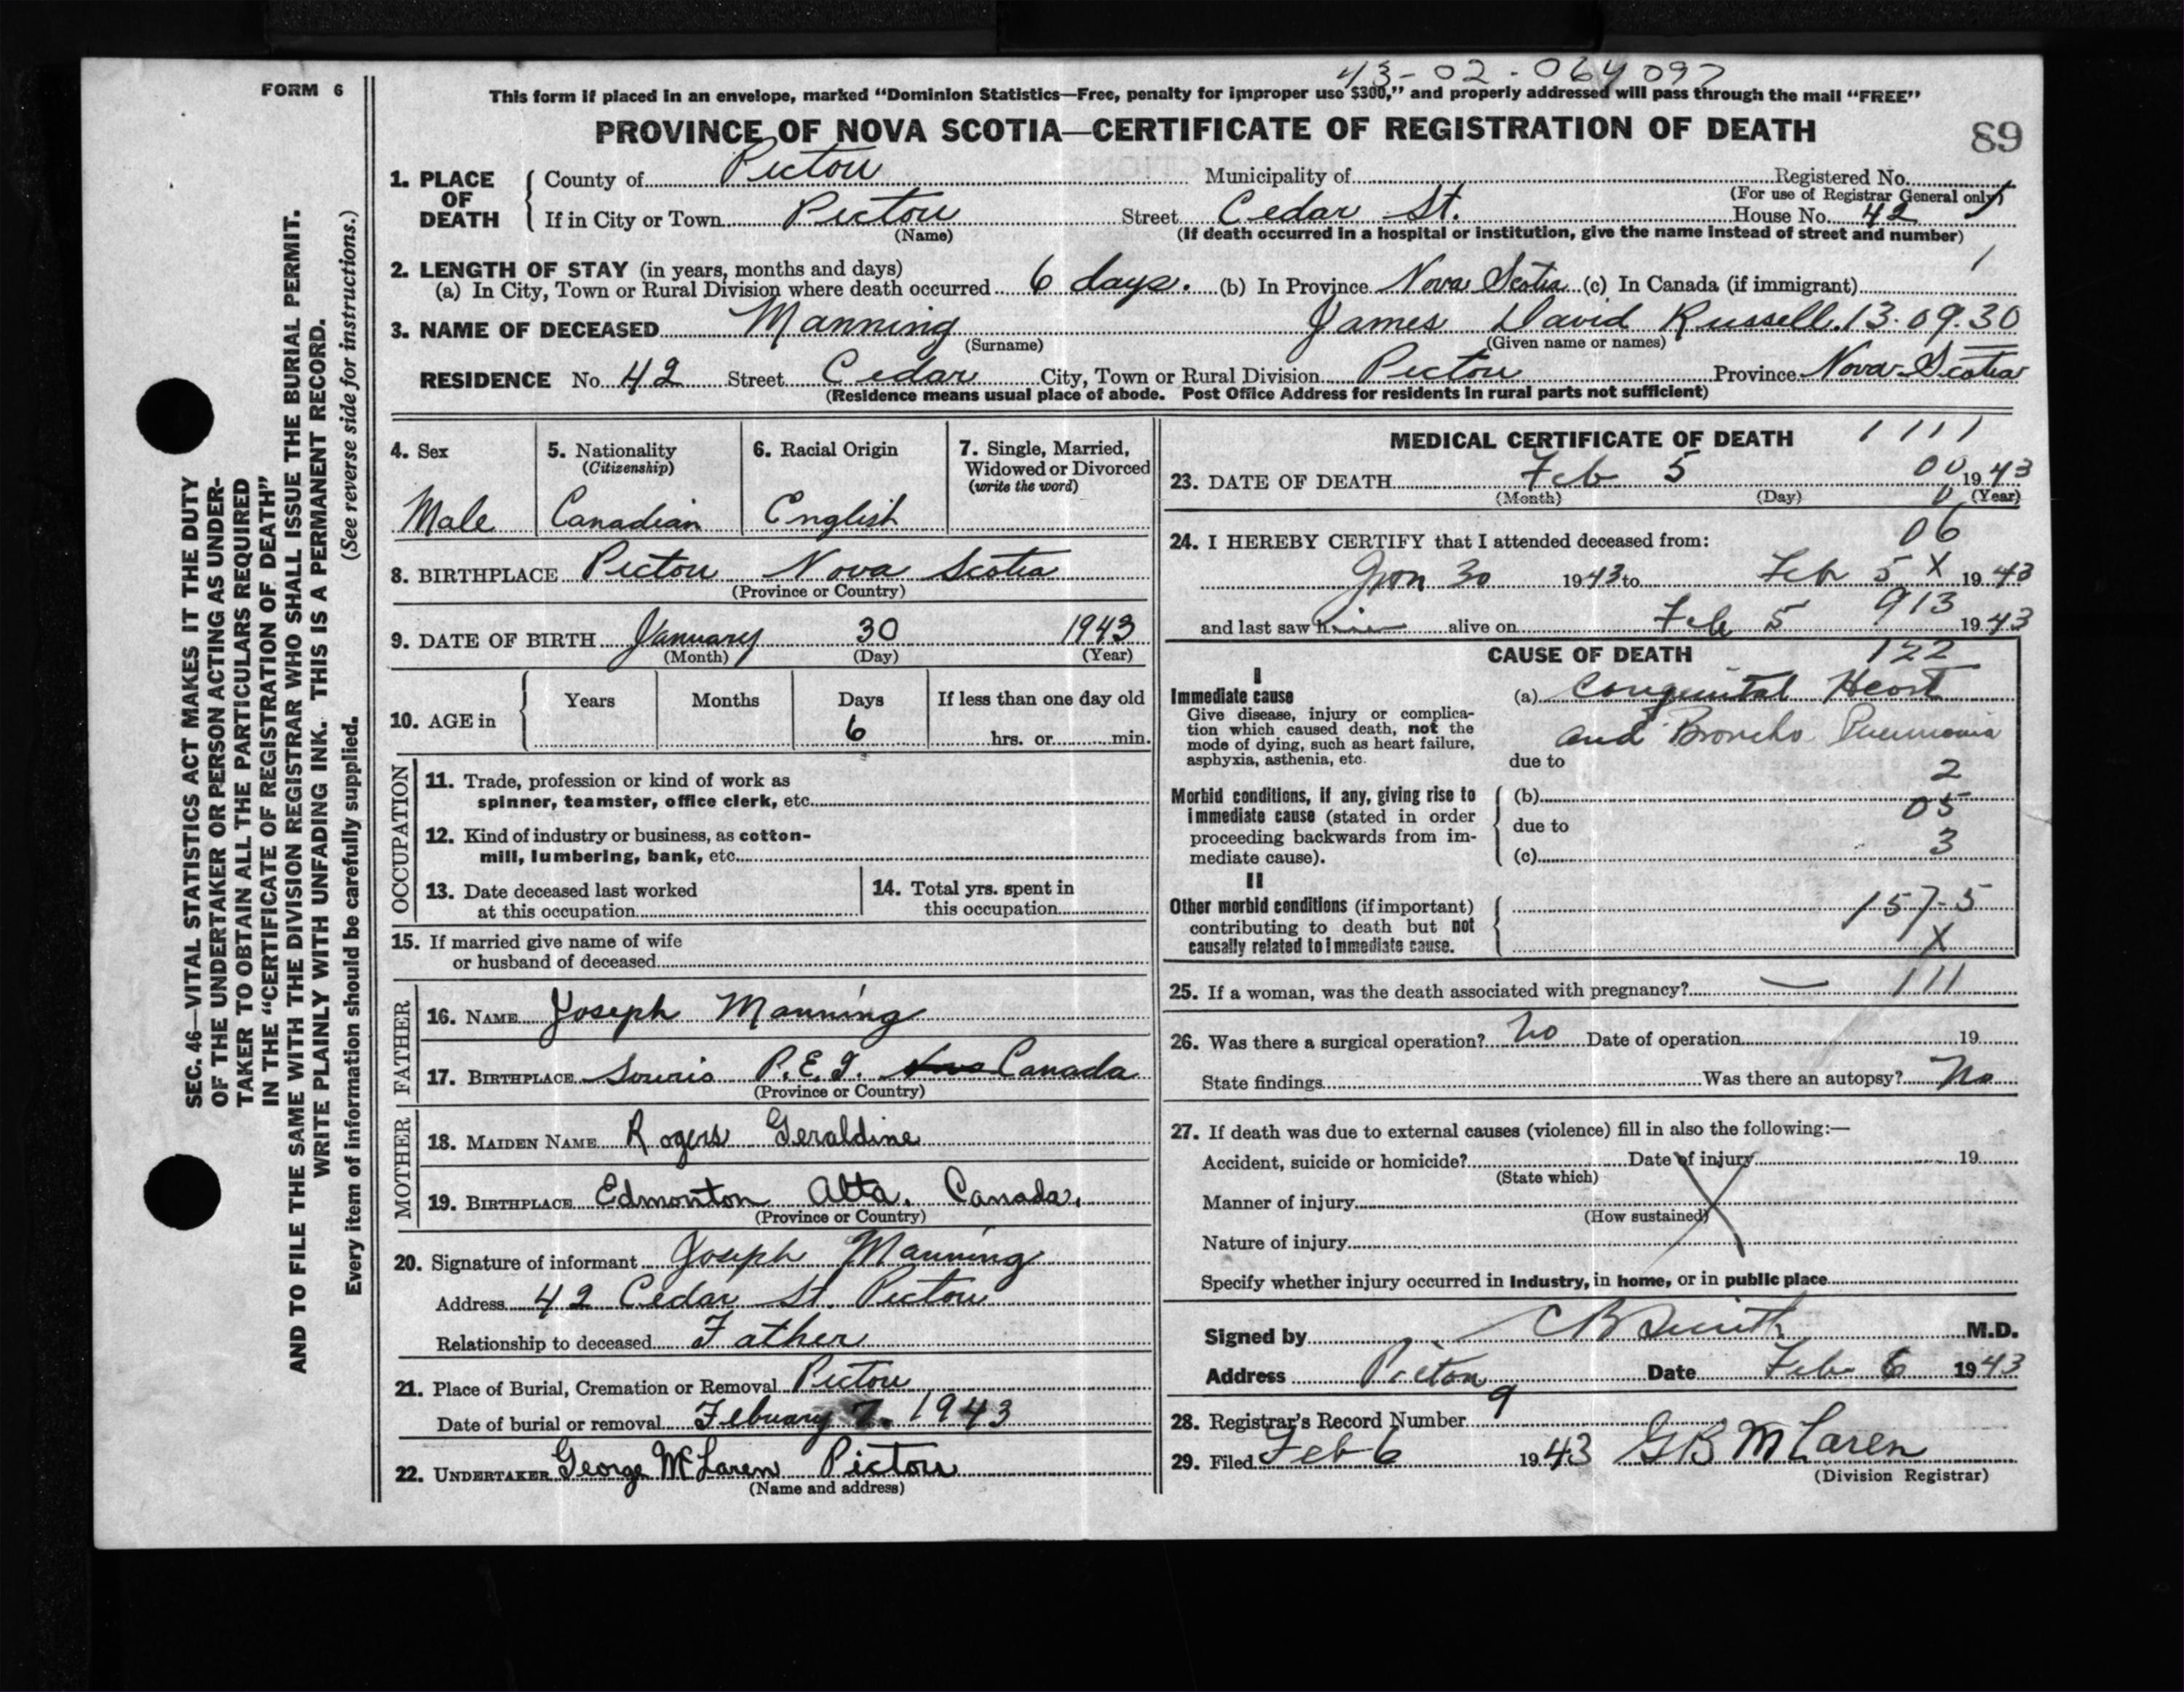 43-02-064097
FORM 6
This form if placed in an envelope, marked "Dominion Statistics—Free, penalty for improper use $300," and properly addressed will pass through the mail "FREE"
PROVINCE OF NOVA SCOTIA—CERTIFICATE OF REGISTRATION OF DEATH
89
1. PLACE OF DEATH
County of Pictou Municipality of Registered No.
(For use of Registrar General only)
If in City or Town Pictou Street Cedar St. House No. 42
(Name) (If death occurred in a hospital or institution, give the name instead of street and number)
2. LENGTH OF STAY (in years, months and days)
(a) In City, Town or Rural Division where death occurred 6 days. (b) In Province Nova Scotia (c) In Canada (if immigrant)
1
3. NAME OF DECEASED Manning James David Russell. 13-09-30
(Surname) (Given name or names)
RESIDENCE No. 42 Street Cedar City, Town or Rural Division Pictou Province Nova Scotia
(Residence means usual place of abode. Post Office Address for residents in rural parts not sufficient)
4. Sex
Male
5. Nationality
(Citizenship)
Canadian
6. Racial Origin
English
7. Single, Married, Widowed or Divorced
(write the word)
8. BIRTHPLACE Pictou Nova Scotia
(Province or Country)
9. DATE OF BIRTH January 30 1943
(Month) (Day) (Year)
10. AGE in
Years Months Days If less than one day old
6 hrs. or min.
OCCUPATION
11. Trade, profession or kind of work as
spinner, teamster, office clerk, etc.
12. Kind of industry or business, as cotton-
mill, lumbering, bank, etc.
13. Date deceased last worked
at this occupation
14. Total yrs. spent in
this occupation
15. If married give name of wife
or husband of deceased
FATHER
16. NAME Joseph Manning
17. BIRTHPLACE Souris P.E.I. Canada
(Province or Country)
MOTHER
18. MAIDEN NAME Rogers Geraldine
19. BIRTHPLACE Edmonton Alta. Canada.
(Province or Country)
20. Signature of informant Joseph Manning
Address 42 Cedar St. Pictou
Relationship to deceased Father
21. Place of Burial, Cremation or Removal Pictou
Date of burial or removal Febuary 7. 1943
22. UNDERTAKER George McLaren Pictou
(Name and address)
MEDICAL CERTIFICATE OF DEATH 1111
23. DATE OF DEATH Feb 5 00 1943
(Month) (Day) 0 (Year)
06
24. I HEREBY CERTIFY that I attended deceased from:
Jan 30 1943 to Feb 5 X 1943
913
and last saw him alive on Feb 5 1943
CAUSE OF DEATH 122
I
Immediate cause
Give disease, injury or complica-
tion which caused death, not the
mode of dying, such as heart failure,
asphyxia, asthenia, etc.
(a) Congenital Heart
and Broncho Pneumonia
due to
2
Morbid conditions, if any, giving rise to
immediate cause (stated in order
proceeding backwards from im-
mediate cause).
(b)
05
due to
3
(c)
II
Other morbid conditions (if important)
contributing to death but not
causally related to immediate cause.
157-5
X
25. If a woman, was the death associated with pregnancy? — 111
26. Was there a surgical operation? No Date of operation 19
State findings Was there an autopsy? No
27. If death was due to external causes (violence) fill in also the following:—
Accident, suicide or homicide? Date of injury 19
(State which)
Manner of injury
(How sustained)
Nature of injury
Specify whether injury occurred in Industry, in home, or in public place
Signed by CB Smith M.D.
Address Pictou Date Feb 6 1943
28. Registrar's Record Number 9
29. Filed Feb 6 1943 GB McLaren
(Division Registrar)
SEC. 46—VITAL STATISTICS ACT MAKES IT THE DUTY
OF THE UNDERTAKER OR PERSON ACTING AS UNDER-
TAKER TO OBTAIN ALL THE PARTICULARS REQUIRED
IN THE "CERTIFICATE OF REGISTRATION OF DEATH"
AND TO FILE THE SAME WITH THE DIVISION REGISTRAR WHO SHALL ISSUE THE BURIAL PERMIT.
WRITE PLAINLY WITH UNFADING INK. THIS IS A PERMANENT RECORD.
Every item of information should be carefully supplied. (See reverse side for instructions.)